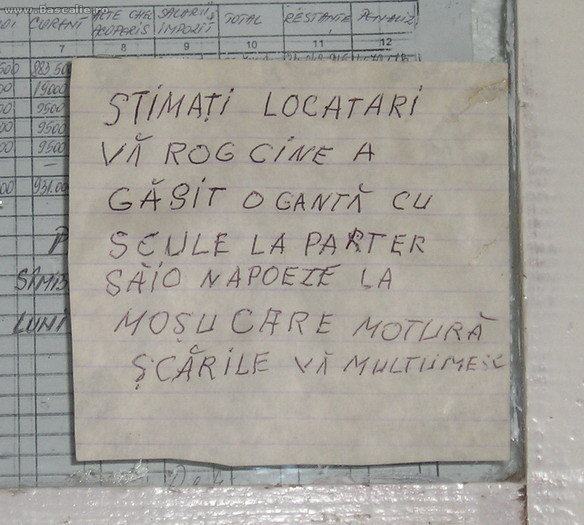 www.Bascalie.ro
CURENT ALTE CHEL. SALARII TOTAL RESTANTE PENALIZ
ACOPERIS IMPOZIT
7 8 9 10 11 12
500 983.500
19000
00 9500
00 9500
00 9500
00 931.00
STIMAȚI LOCATARI
VĂ ROG CINE A
GĂSIT O GANTĂ CU
SCULE LA PARTER
SĂIO NAPOEZE LA
MOȘU CARE MOTURĂ
ȘCĂRILE VĂ MULTUMESC
SÎMB
LUNI